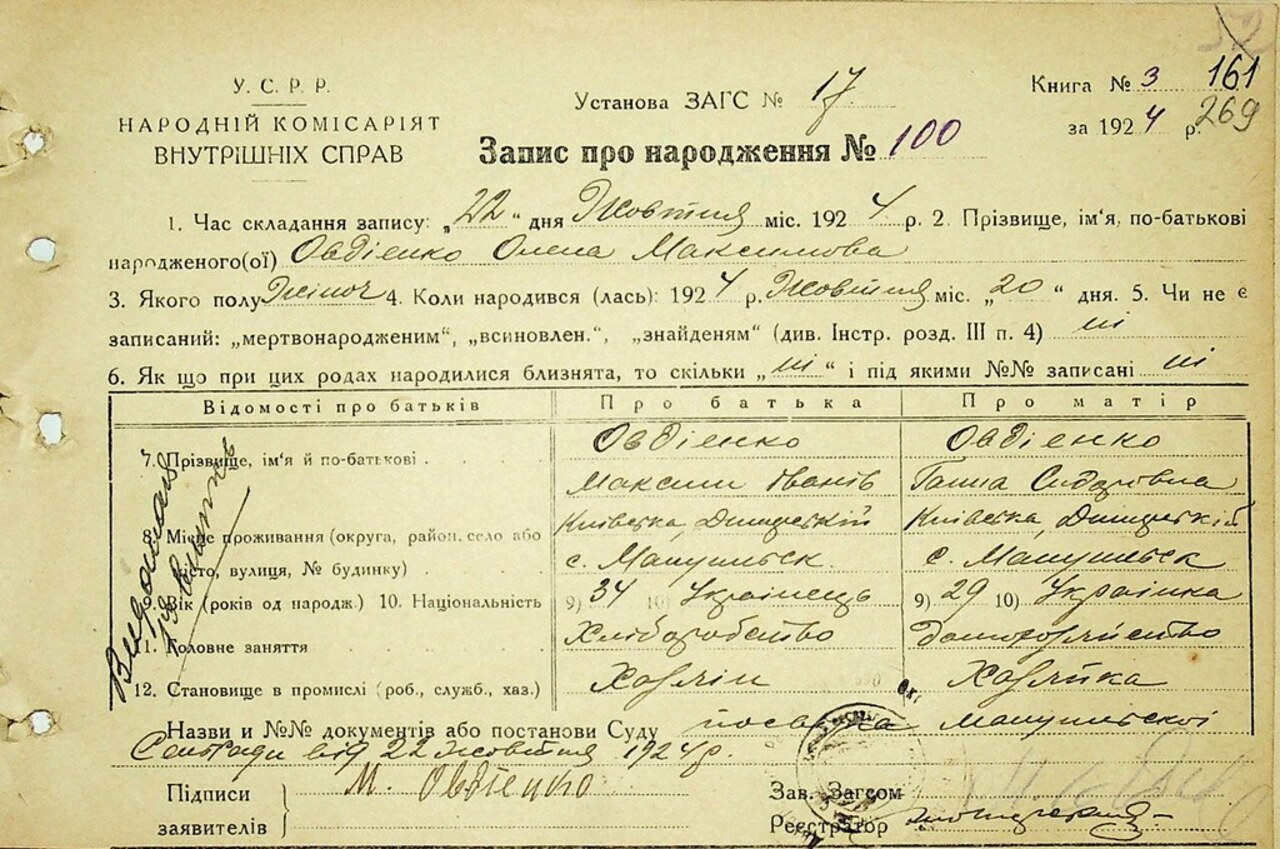 У. С. Р. Р.
НАРОДНІЙ КОМІСАРІЯТ
ВНУТРІШНІХ СПРАВ
Установа ЗАГС № 17.
Книга № 3 161
за 1924 р. 269
Запис про народження № 100
1. Час складання запису: „22“ дня Жовтня міс. 1924 р. 2. Прізвище, ім'я, по-батькові
народженого(ої) Овдієнко Олена Максимова
3. Якого полу Жіноч 4. Коли народився (лась): 1924 р. Жовтня міс. „20“ дня. 5. Чи не є
записаний: „мертвонародженим“, „всиновлен.“, „знайденям“ (див. Інстр. розд. III п. 4) ні
6. Як що при цих родах народилися близнята, то скільки „ні“ і під якими №№ записані ні
Відомості про батьків Про батька Про матір
7. Прізвище, ім'я й по-батькові Овдієнко Овдієнко
Максим Іванів Ганна Сидорівна
8. Місце проживання (округа, район, село або Київська, Київська,
місто, вулиця, № будинку) с. с.
9. Вік (років од народж.) 10. Національність 9) 34 10) Українець 9) 29 10) Українка
11. Головне заняття Хліборобство
12. Становище в промислі (роб., служб., хаз.) Хазяїн Хазяйка
Назви и №№ документів або постанови Суду
Сельради від 22 жовтня 1924 р.
Підписи
заявителів
М. Овдіенко
Зав. Загсом
Реєстратор